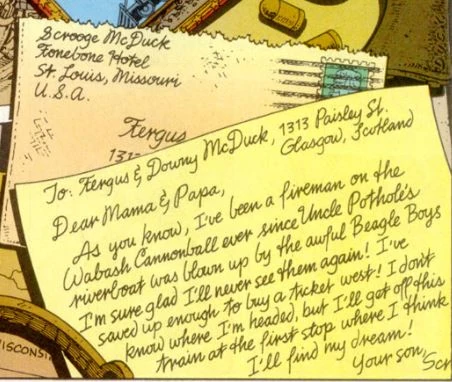 Scrooge McDuck
Fonebone Hotel
St. Louis, Missouri
U.S.A.
Fergus
131
To: Fergus & Downy McDuck, 1313 Paisley St.
Glasgow, Scotland
Dear Mama & Papa,
As you know, I've been a fireman on the
Wabash Cannonball ever since Uncle Pothole's
riverboat was blown up by the awful Beagle Boys
I'm sure glad I'll never see them again! I've
saved up enough to buy a ticket west! I don't
know where I'm headed, but I'll get off this
train at the first stop where I think
I'll find my dream!
Your son,
Scr
WISCONSI